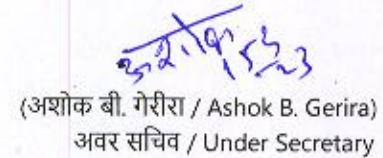 अशोक
(अशोक बी. गेरीरा / Ashok B. Gerira)
अवर सचिव / Under Secretary